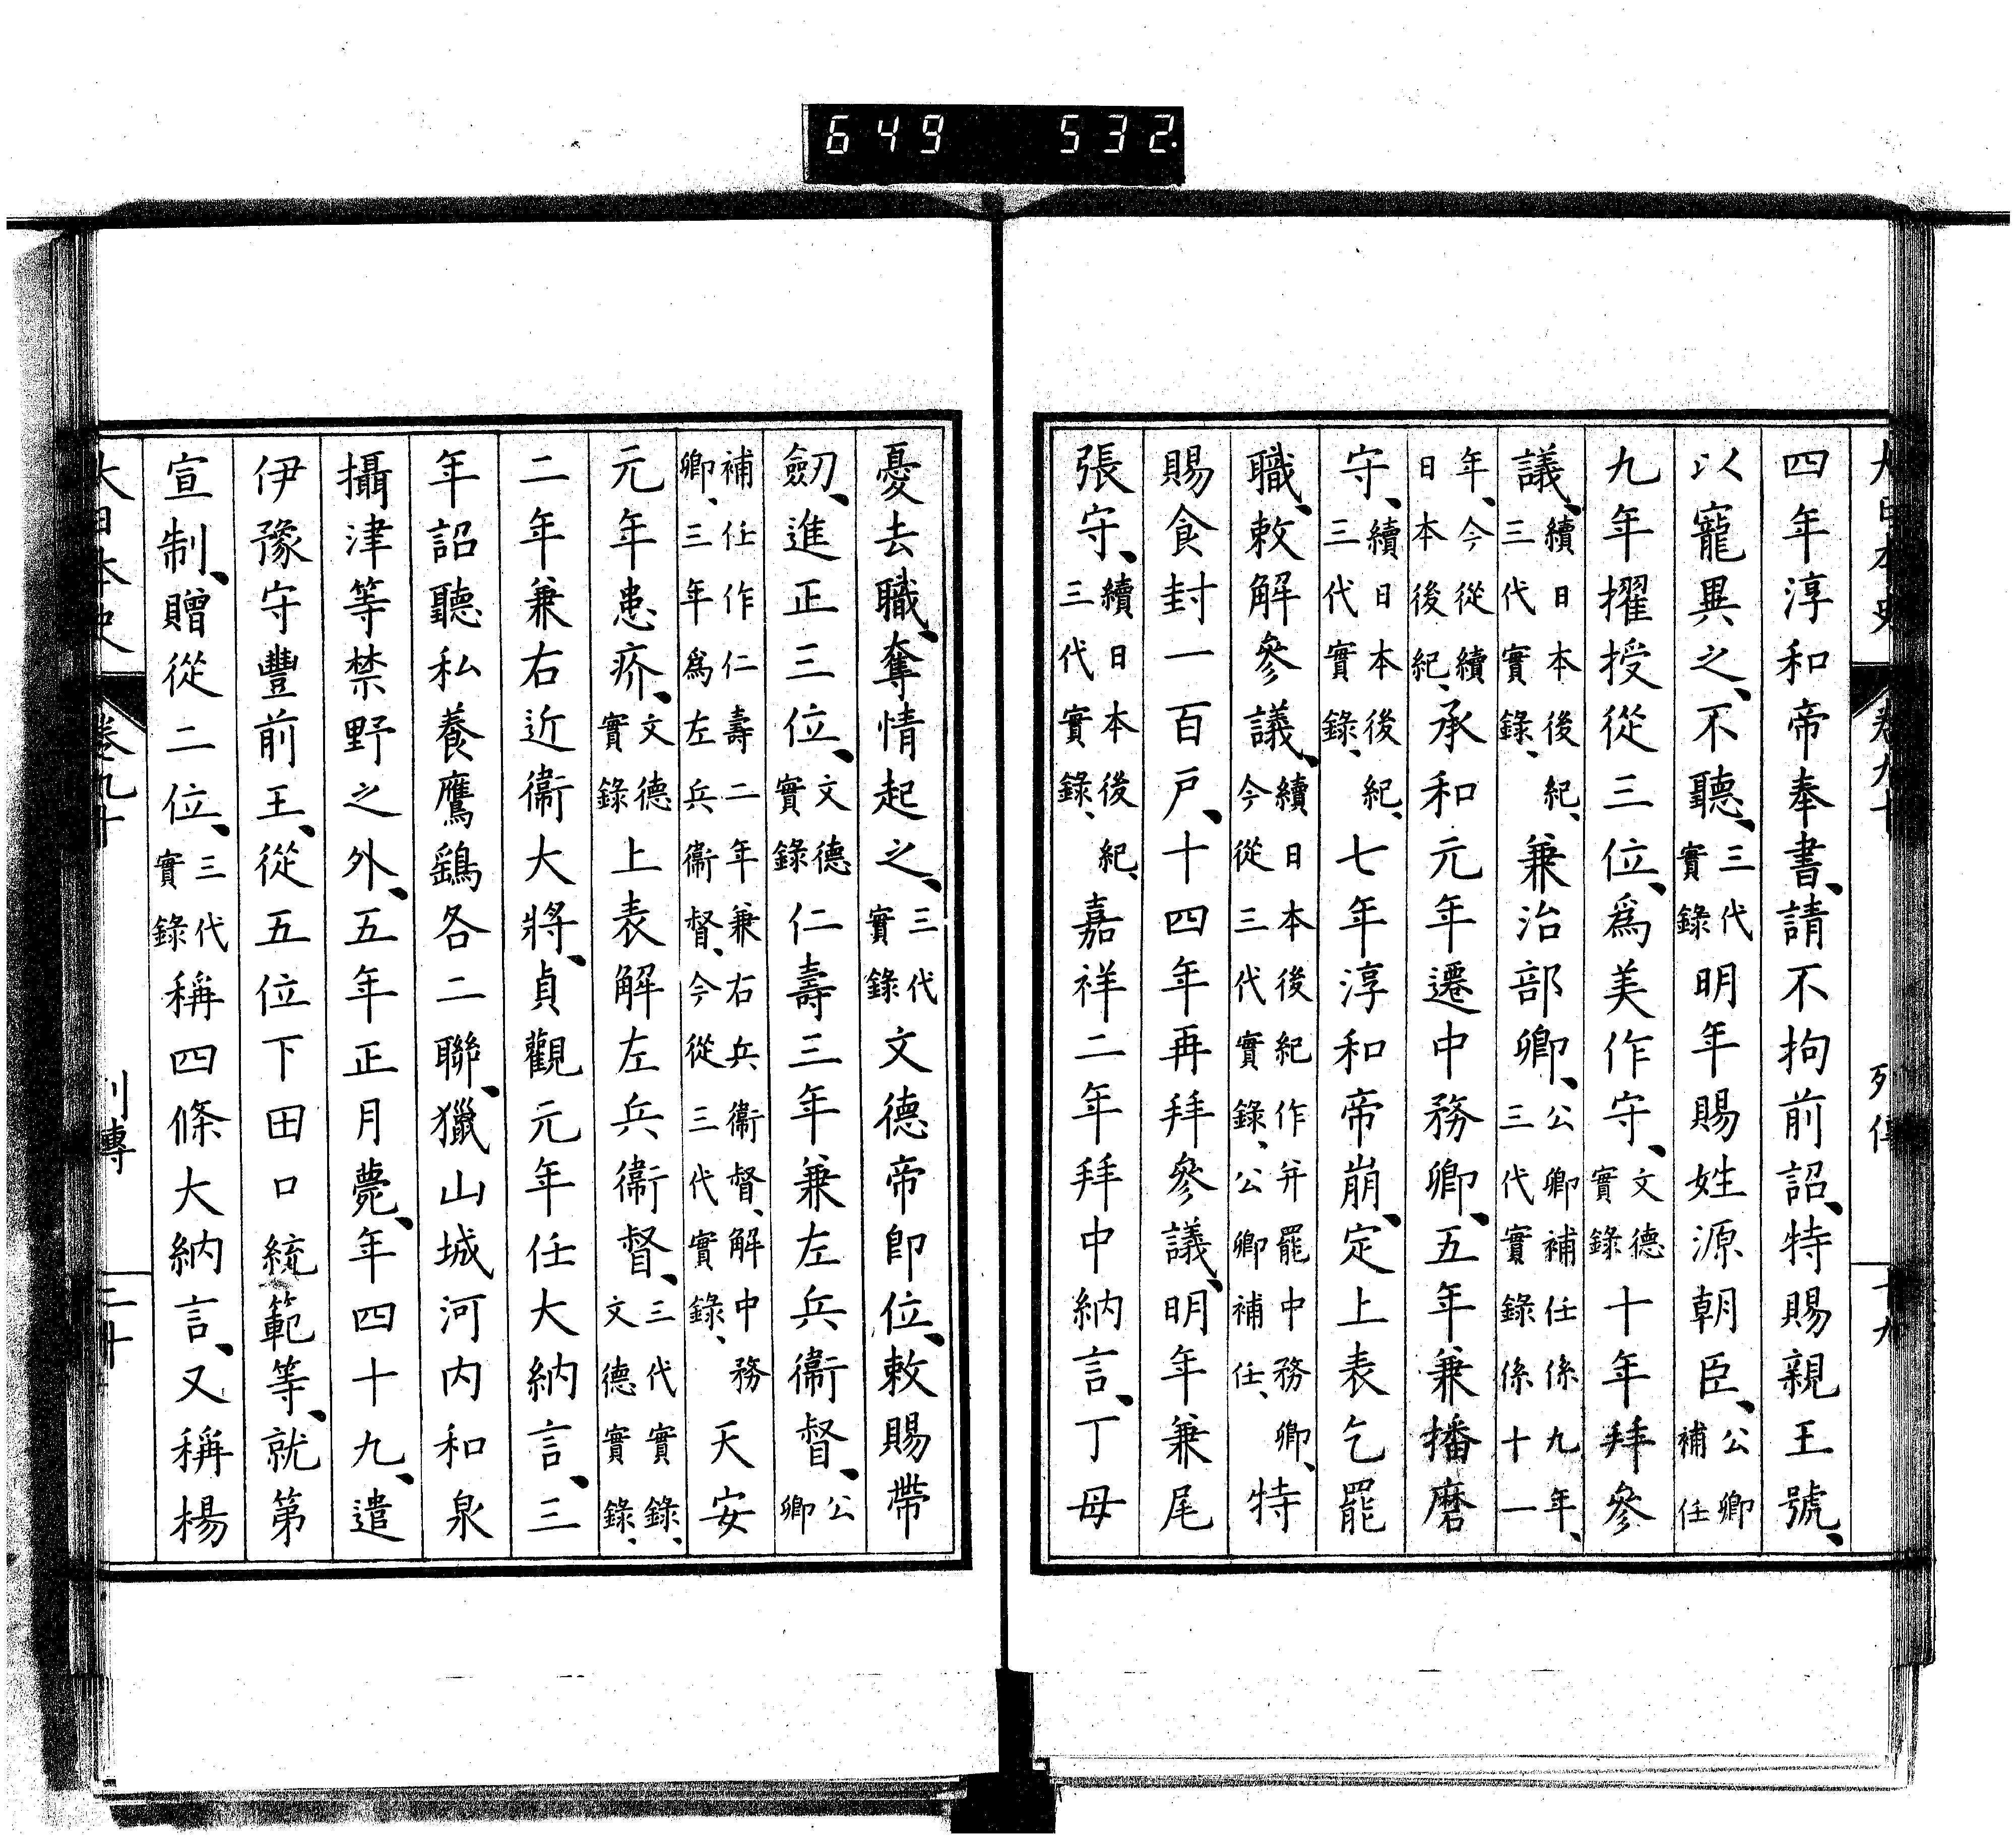 649 532.
大日本史 卷九十 列傳 十九
四年淳和帝奉書、請不拘前詔、特賜親王號、
以寵異之、不聽、三代實錄明年賜姓源朝臣、公卿補任
九年擢授從三位、爲美作守、文德實錄十年拜參
議、續日本後紀、三代實錄、兼治部卿、公卿補任係九年、三代實錄係十一
年、今從續日本後紀、承和元年遷中務卿、五年兼播磨
守、續日本後紀、三代實錄、七年淳和帝崩、定上表乞罷
職、敕解參議、續日本後紀作并罷中務卿、今從三代實錄、公卿補任、特
賜食封一百戶、十四年再拜參議、明年兼尾
張守、續日本後紀、三代實錄、嘉祥二年拜中納言、丁母
憂去職、奪情起之、三代實錄文德帝卽位、敕賜帶
劒、進正三位、文德實錄仁壽三年兼左兵衞督、公卿
補任作仁壽二年兼右兵衞督、解中務卿、三年爲左兵衞督、今從三代實錄、天安
元年患疥、文德實錄上表解左兵衞督、三代實錄、文德實錄、
二年兼右近衞大將、貞觀元年任大納言、三
年詔聽私養鷹鷂各二聯、獵山城河内和泉
攝津等禁野之外、五年正月薨、年四十九、遣
伊豫守豐前王、從五位下田口統範等、就第
宣制、贈從二位、三代實錄稱四條大納言、又稱楊
大日本史 卷九十 列傳 二十